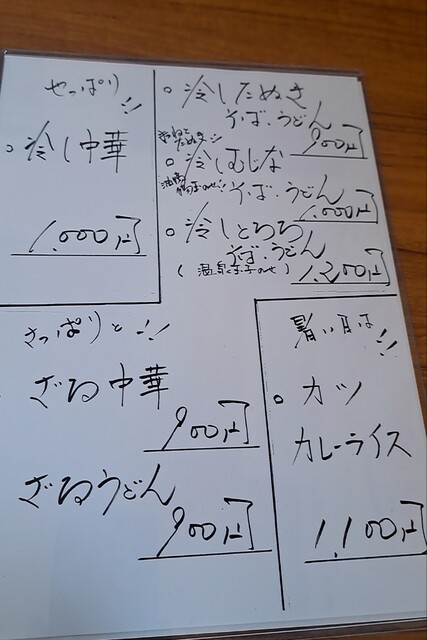 やっぱり!!
○冷し中華
1,000円
○冷したぬき
そば、うどん
900円
きつねとたぬき!!
○冷しむじな
そば、うどん
1,000円
○冷しとろろ
そば、うどん
(温泉玉子のせ)
1,200円
さっぱりと!!
ざる中華
900円
ざるうどん
900円
暑い日は!!
○カツ
カレーライス
1,100円